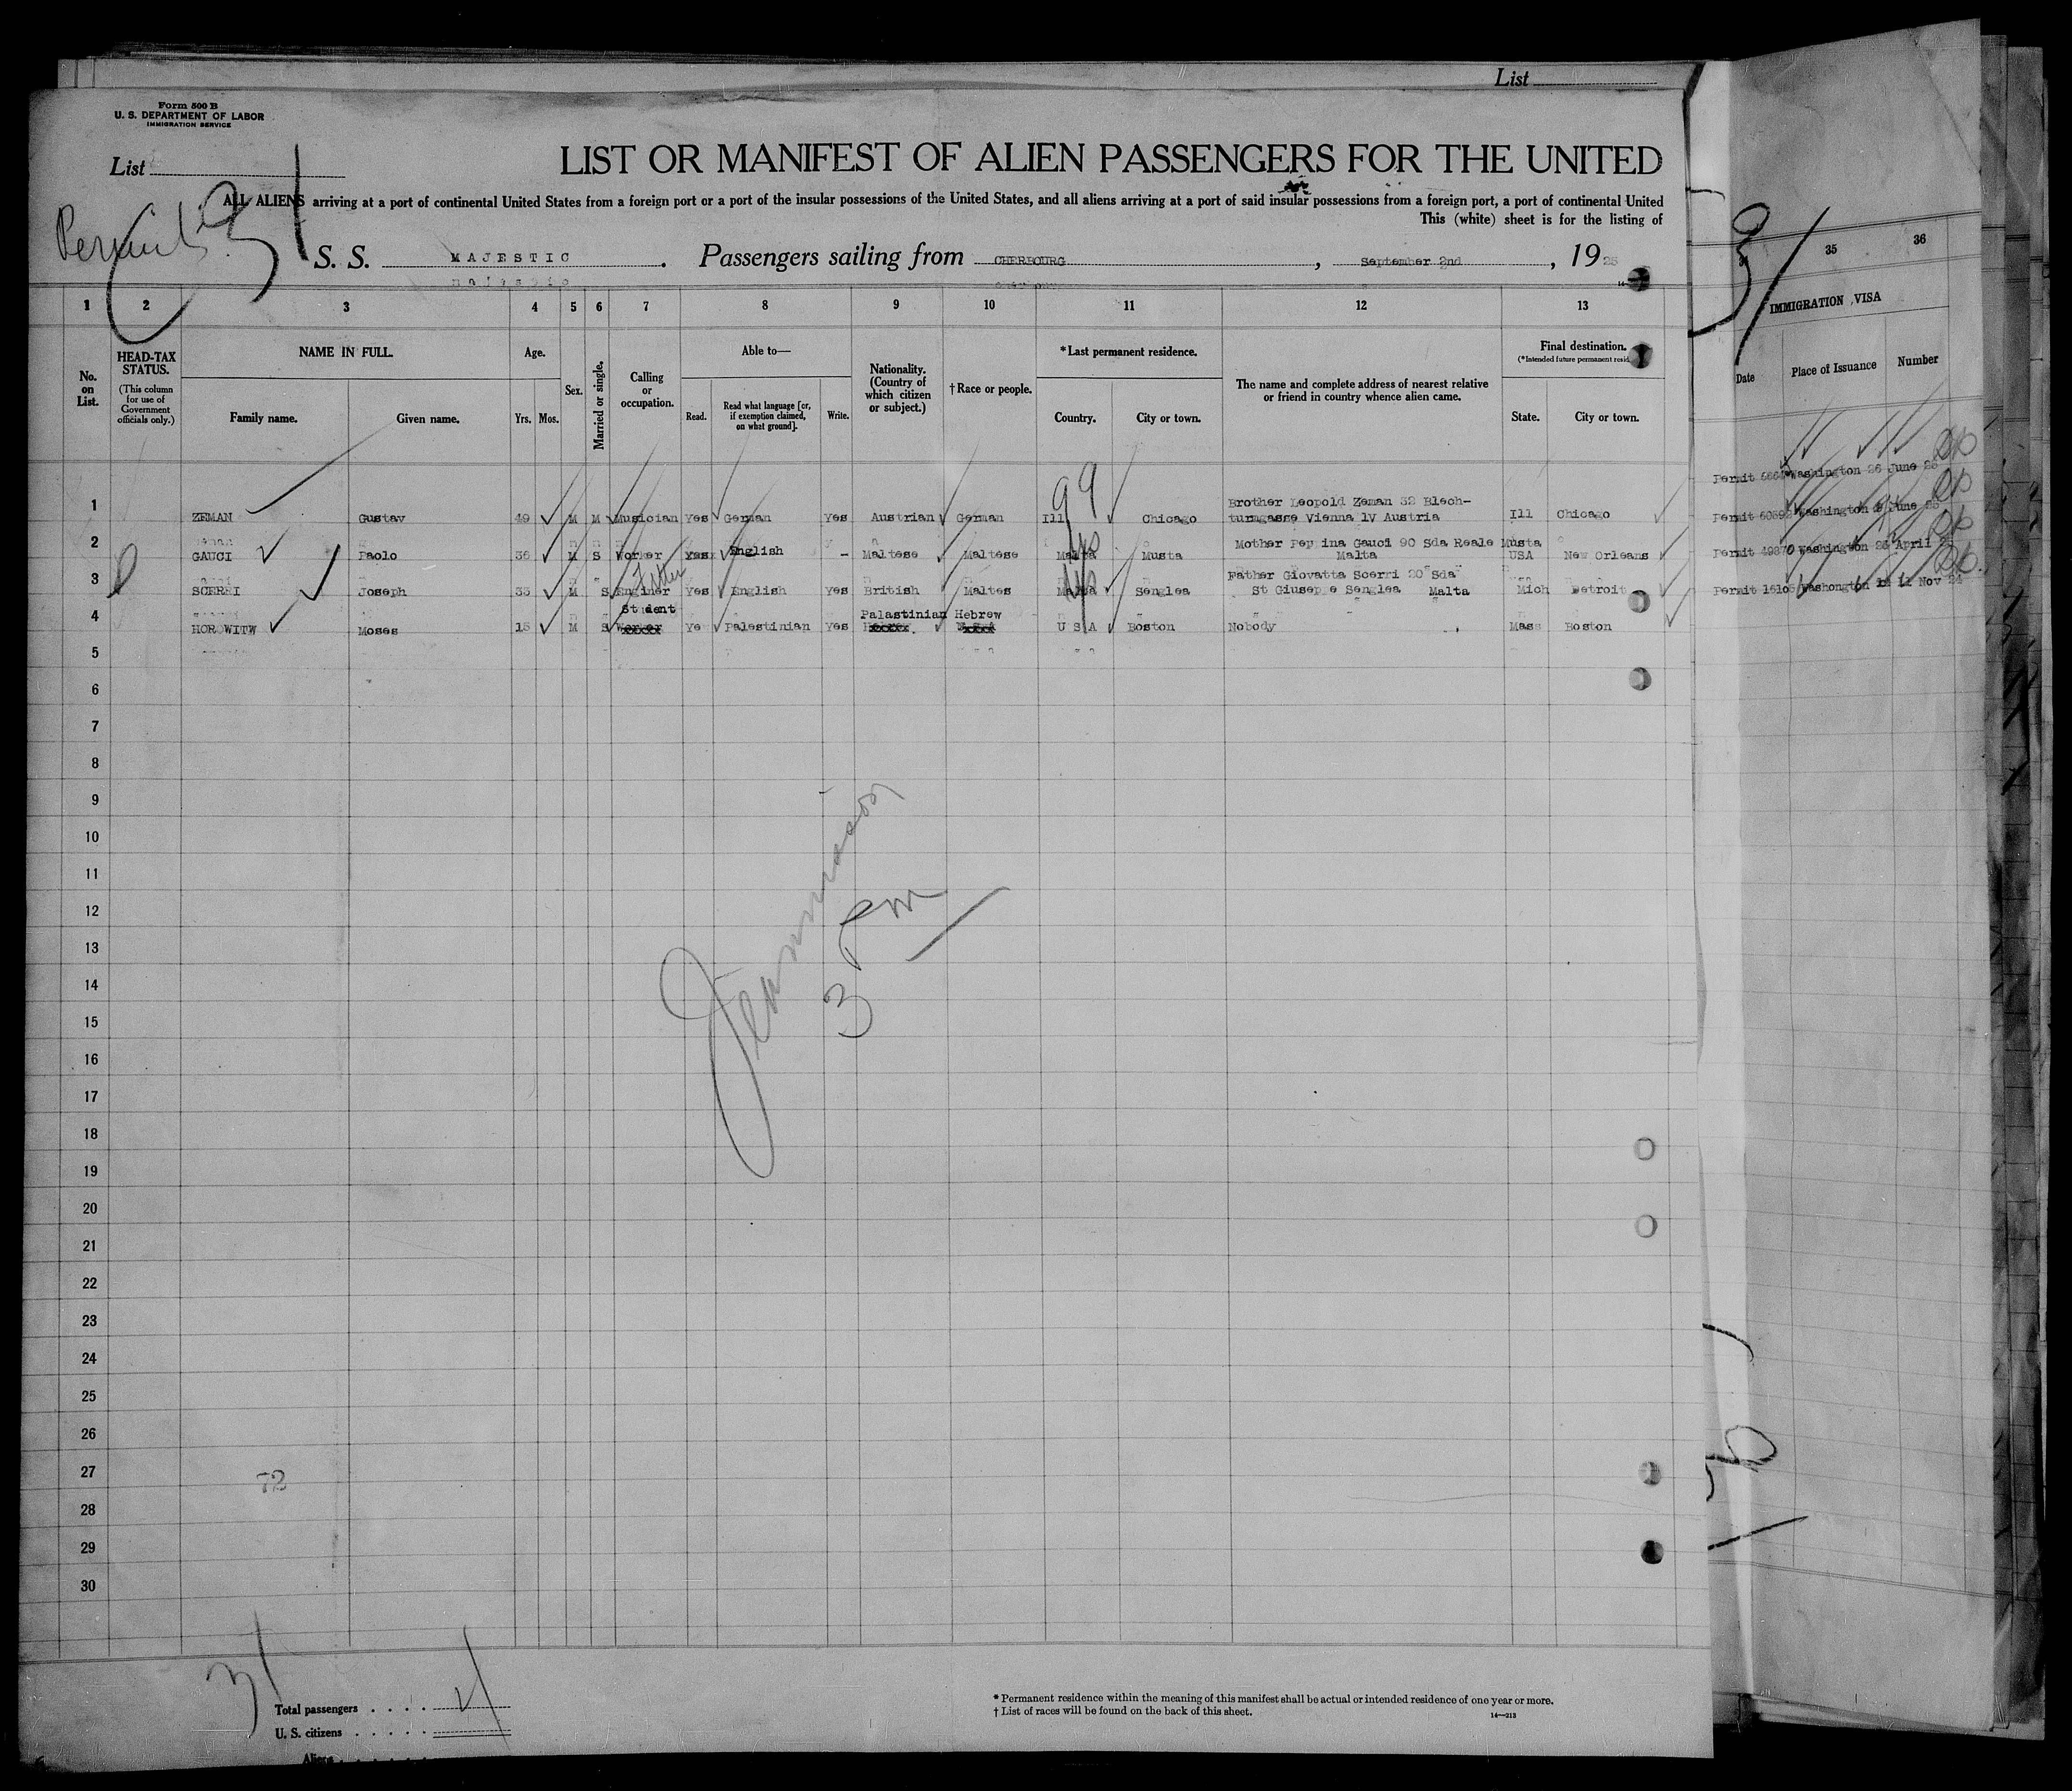 List
Form 500 B
U. S. DEPARTMENT OF LABOR
IMMIGRATION SERVICE
List
31
LIST OR MANIFEST OF ALIEN PASSENGERS FOR THE UNITED
ALL ALIENS arriving at a port of continental United States from a foreign port or a port of the insular possessions of the United States, and all aliens arriving at a port of said insular possessions from a foreign port, a port of continental United
This (white) sheet is for the listing of
Permits
S. S. MAJESTIC. Passengers sailing from CHERBOURG, September 2nd, 1925
1 2 3 4 5 6 7 8 9 10 11 12 13
No. on List.
HEAD-TAX STATUS.
(This column for use of Government officials only.)
NAME IN FULL.
Family name. Given name.
Age.
Yrs. Mos.
Sex.
Married or single.
Calling or occupation.
Able to—
Read. Read what language [or, if exemption claimed, on what ground]. Write.
Nationality. (Country of which citizen or subject.)
† Race or people.
*Last permanent residence.
Country. City or town.
The name and complete address of nearest relative or friend in country whence alien came.
Final destination.
(*Intended future permanent resid
State. City or town.
99
Brother Leopold Zeman 32 Blech-
1 ZEMAN Gustav 49 M M Musician Yes German Yes Austrian German Ill Chicago turmgasse Vienna lV Austria Ill Chicago
Mother Peppina Gauci 90 Sda Reale Musta
2 GAUCI Paolo 36 M S Worker Yes English - Maltese Maltese Malta Musta Malta USA New Orleans
Father Giovatta Scerri 20 Sda
3 SCERRI Joseph 33 M S Enginer Yes English Yes British Maltes Malta Senglea St Giuseppe Senglea Malta Mich Detroit
Student Palastinian Hebrew
4 HOROWITW Moses 15 M S Ye Palestinian Yes U S A Boston Nobody Mass Boston
5
6
7
8
9
10
11
12
13
14
15
16
17
18
19
20
21
22
23
24
25
26
27
28
29
30
3 pm
72
31
Total passengers . . . . 4
U. S. citizens . . . . .
Aliens . . . . . .
* Permanent residence within the meaning of this manifest shall be actual or intended residence of one year or more.
† List of races will be found on the back of this sheet.
14—213
31
35 36
IMMIGRATION VISA
Date Place of Issuance Number
Permit Washington 26 June 25
Permit Washington June 25
Permit 49870 Washington 25 April
Permit Washongton 11 Nov 24